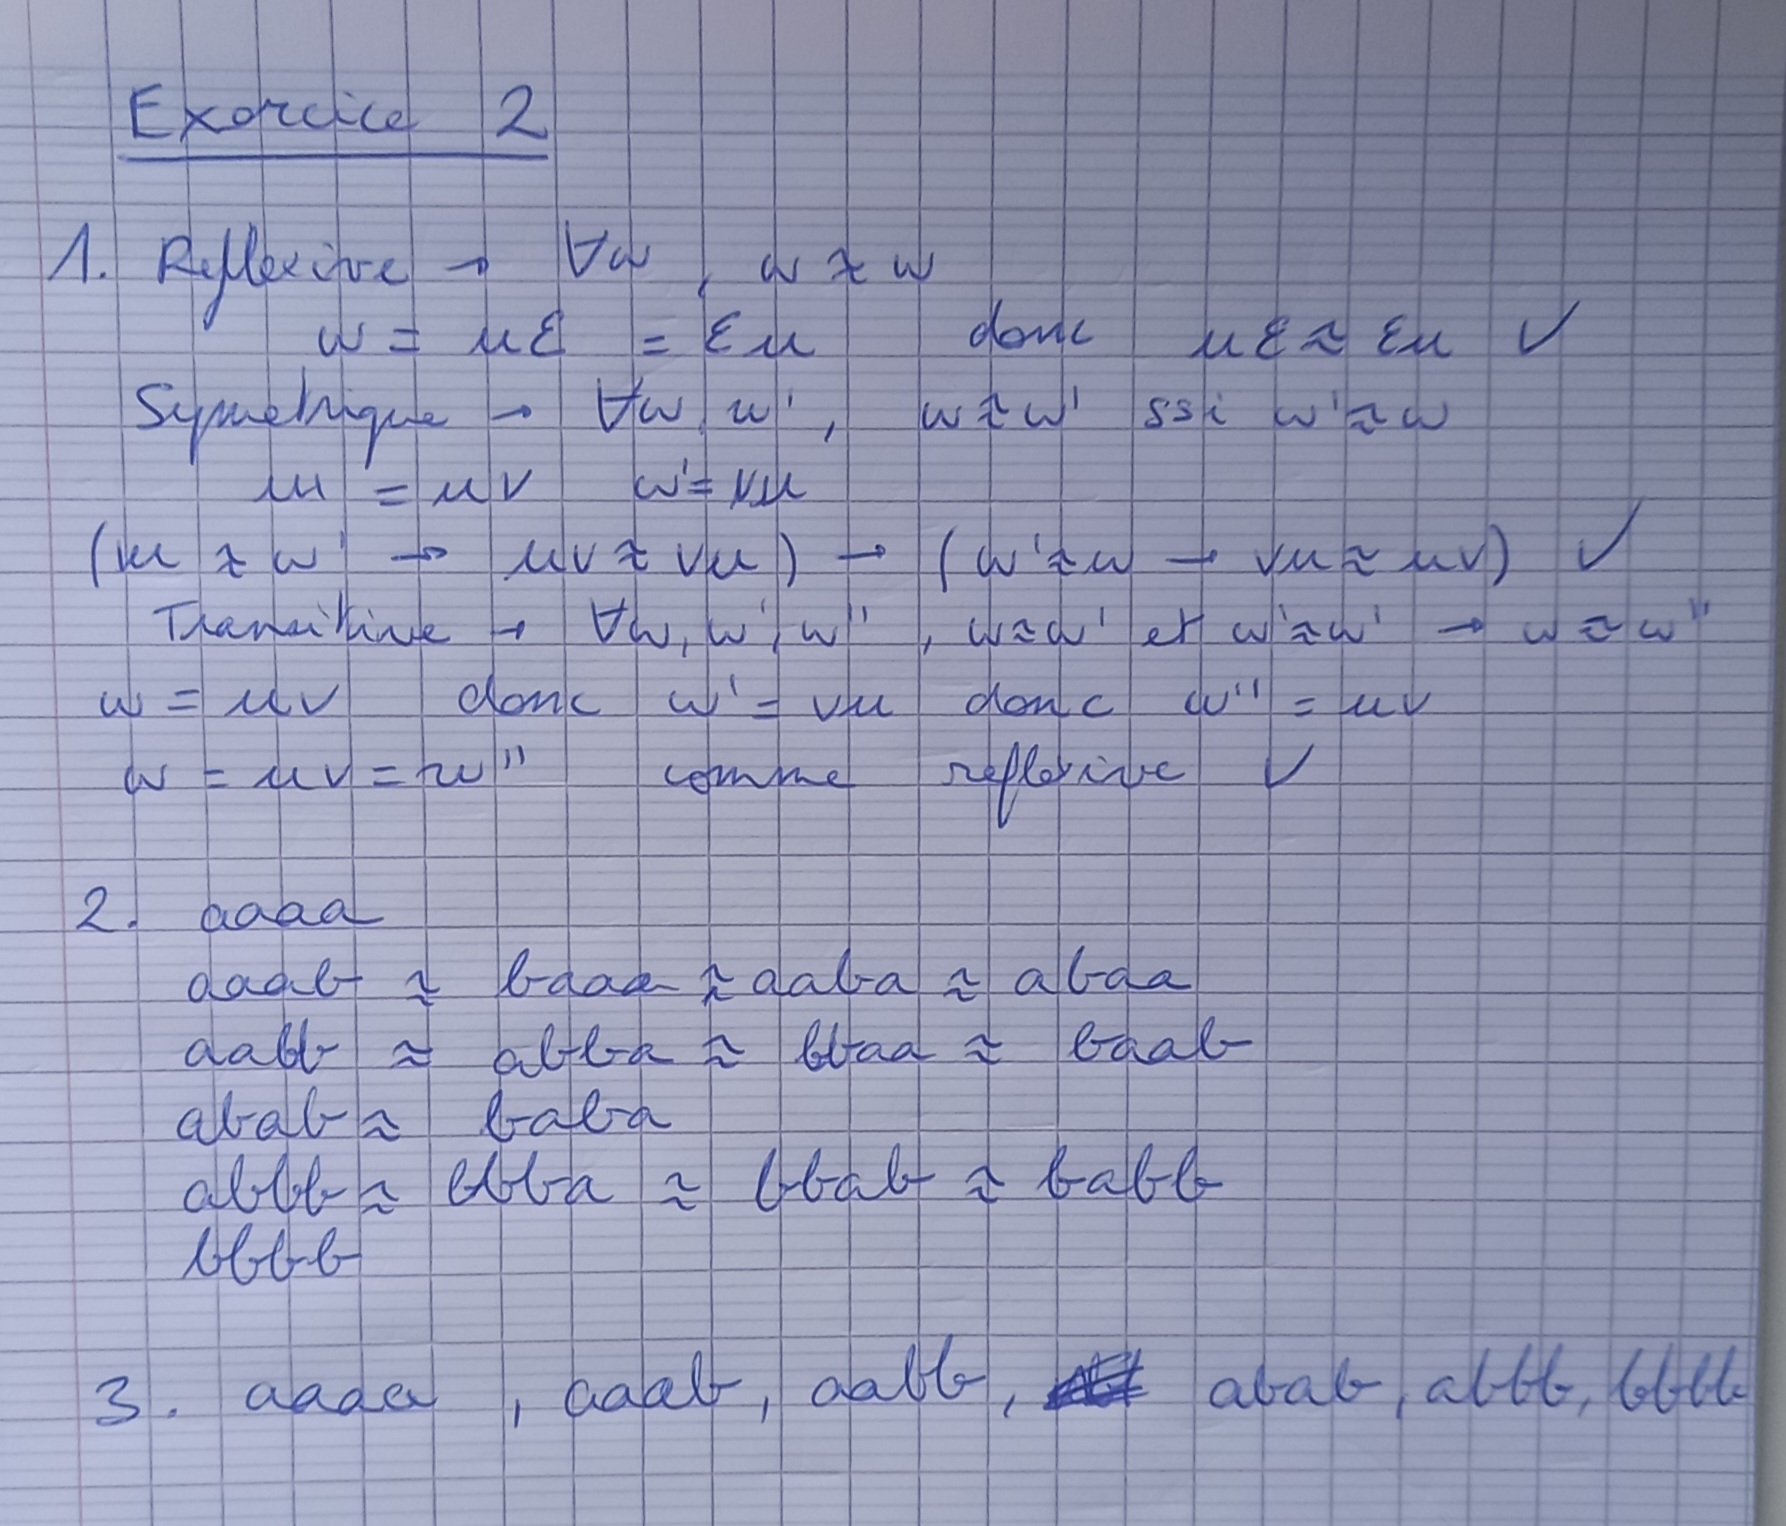 Exercice 2
1. Reflexive → ∀w, w ≈ w
w = uε = εu donc uε ≈ εu ✓
Symetrique → ∀w, w', w ≈ w' ssi w' ≈ w
w = uv w' = vu
(w ≈ w' → uv ≈ vu) → (w' ≈ w → vu ≈ uv) ✓
Transitive → ∀w, w', w'', w ≈ w' et w' ≈ w' → w ≈ w''
w = uv donc w' = vu donc w'' = uv
w = uv = w'' comme reflexive ✓
2. aaaa
aaab ≈ baaa ≈ aaba ≈ abaa
aabb ≈ abba ≈ bbaa ≈ baab
abab ≈ baba
abbb ≈ bbba ≈ bbab ≈ babb
bbbb
3. aaaa, aaab, aabb, abab, abbb, bbbb